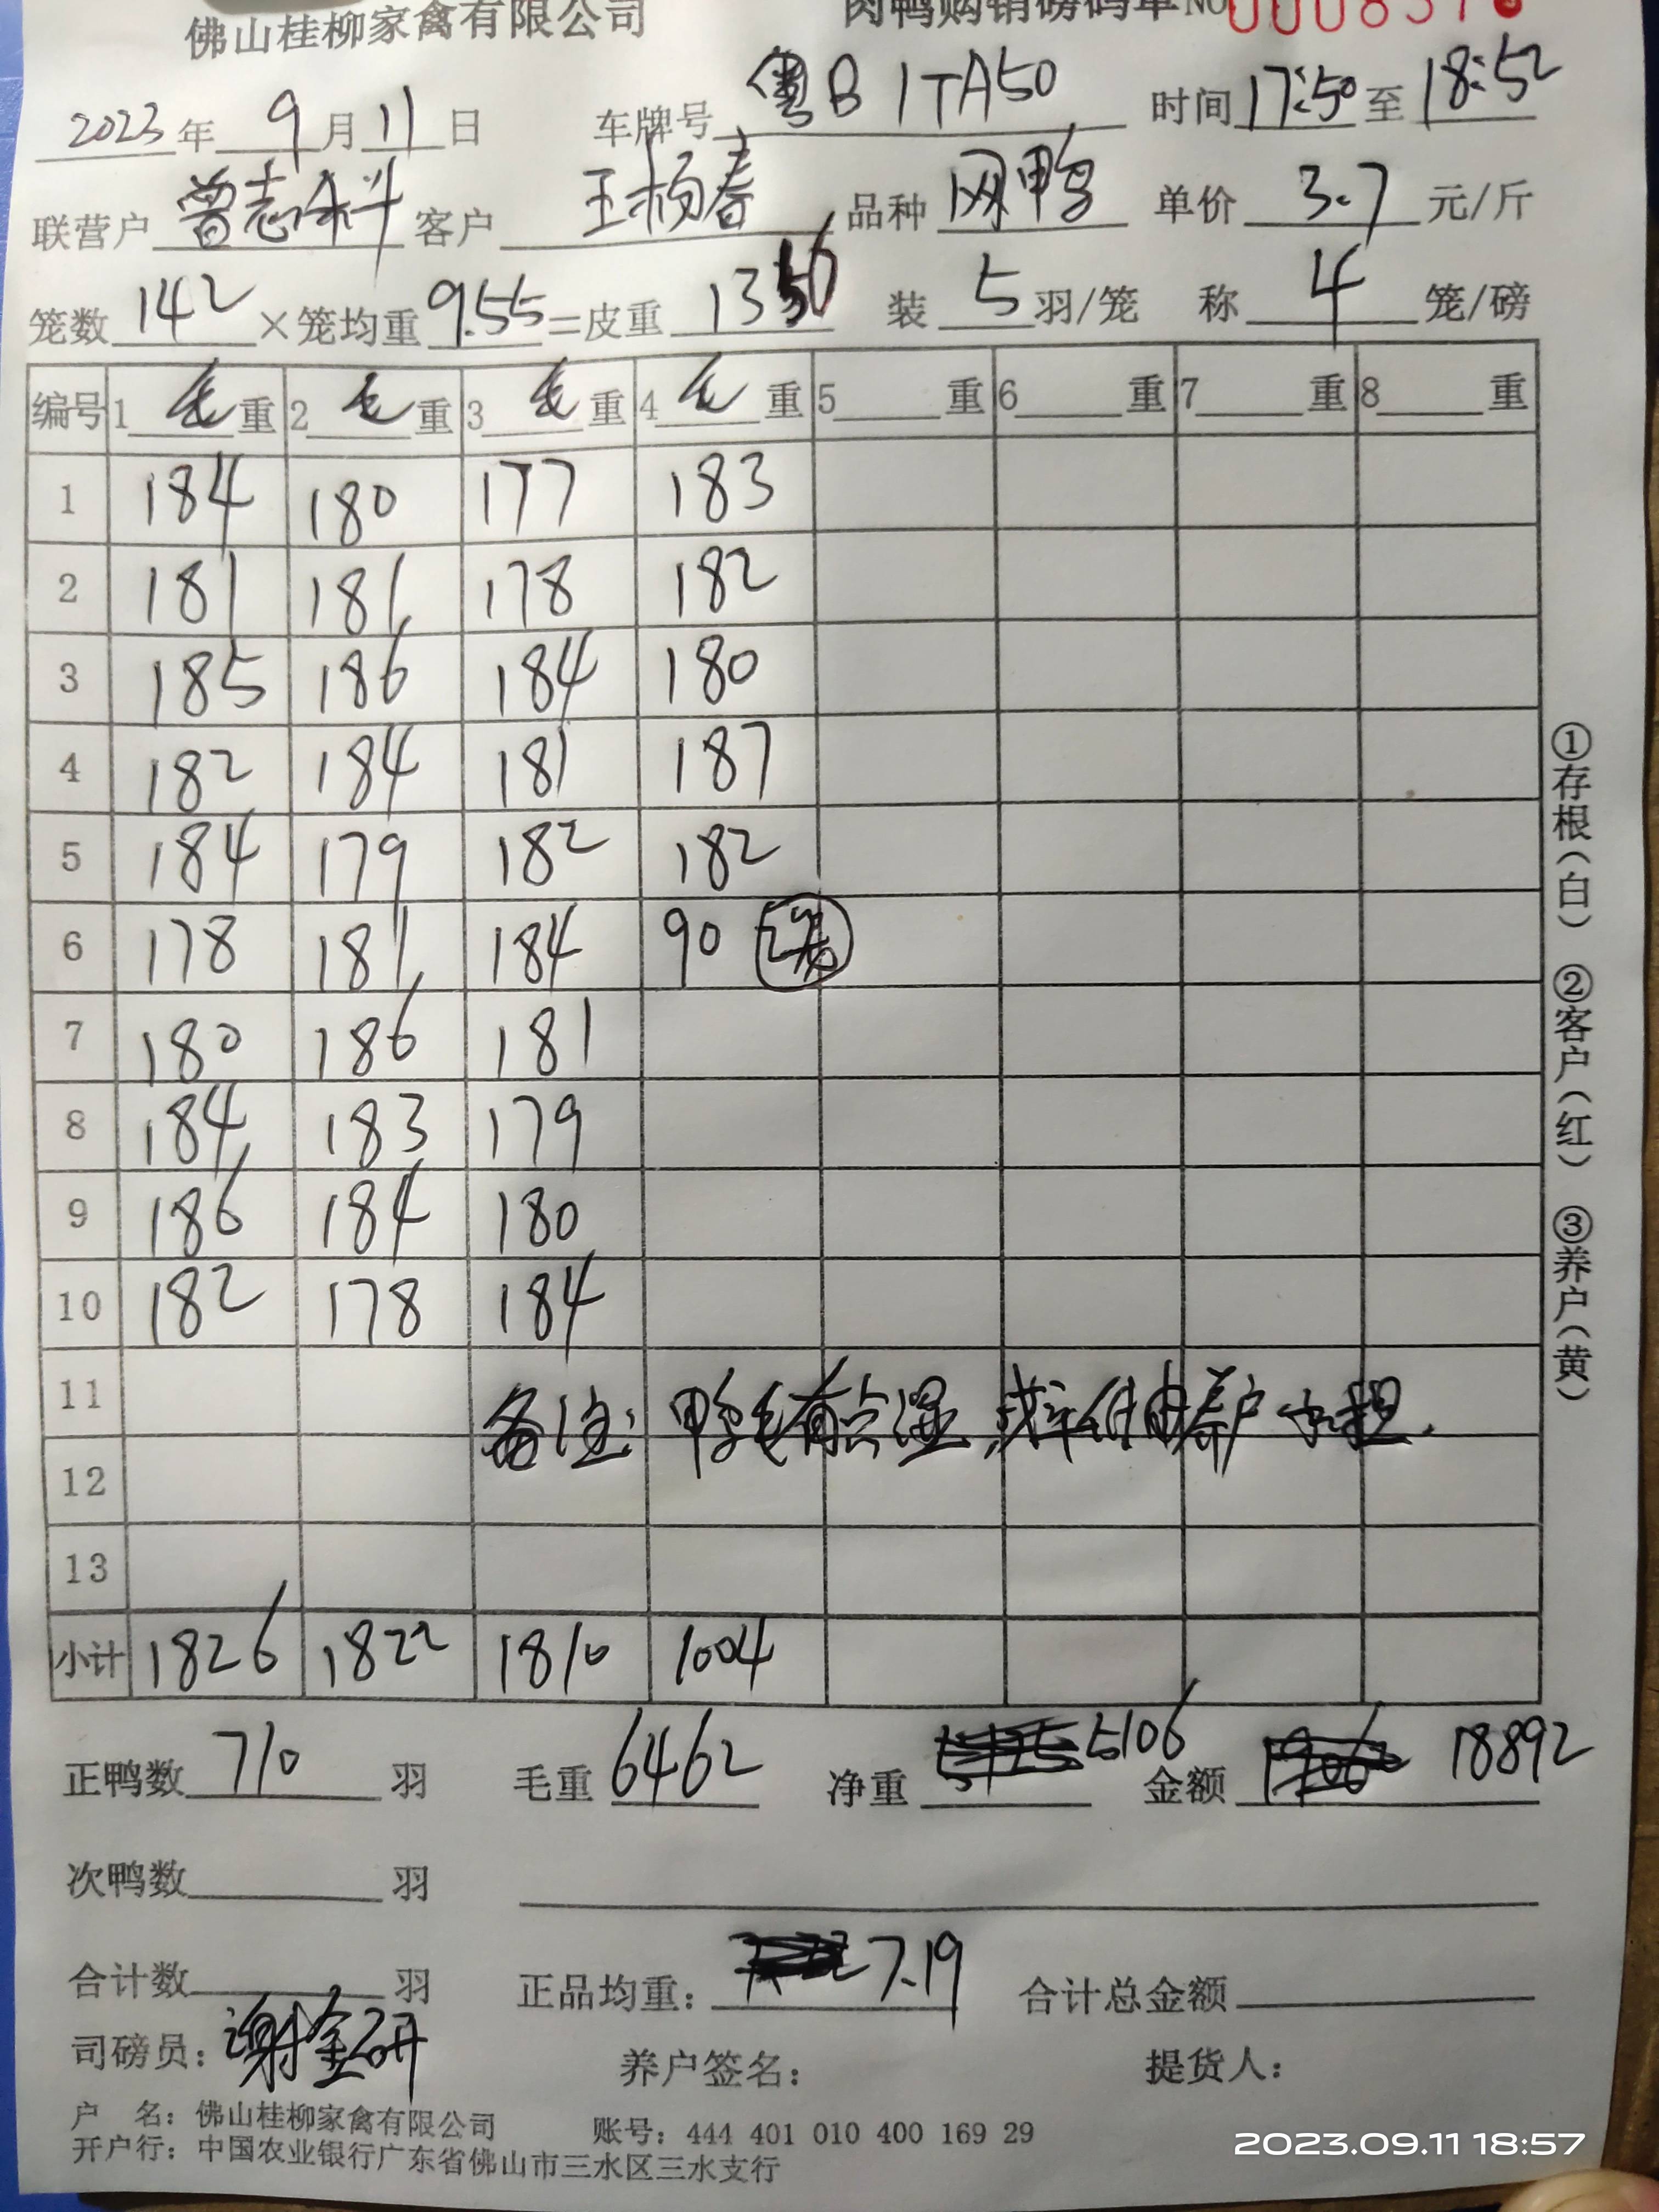 佛山桂柳家禽有限公司 肉鸭购销磅码单 NO
2023年 9月 11日 车牌号 粤B 1TA50 时间 17:50 至 18:52
联营户 曾志科 客户 王杨春 品种 网鸭 单价 3.7 元/斤
笼数 142 ×笼均重 9.55 =皮重 1356 装 5 羽/笼 称 4 笼/磅
编号 1 毛 重 2 毛 重 3 毛 重 4 毛 重 5 重 6 重 7 重 8 重
1 184 180 177 183
2 181 181 178 182
3 185 186 184 180
4 182 184 181 187
5 184 179 182 182
6 178 181 184 90
7 180 186 181
8 184 183 179
9 186 184 180
10 182 178 184
11
备注: 鸭毛有点湿, 由养户承担.
12
13
小计 1826 1822 1810 1004
正鸭数 710 羽 毛重 6462 净重 5106 金额 18892
次鸭数 羽
合计数 羽 正品均重: 7.19 合计总金额
司磅员: 谢金研 养户签名: 提货人:
户 名: 佛山桂柳家禽有限公司 账号: 444 401 010 400 169 29
开户行: 中国农业银行广东省佛山市三水区三水支行
①存根(白) ②客户(红) ③养户(黄)
2023.09.11 18:57